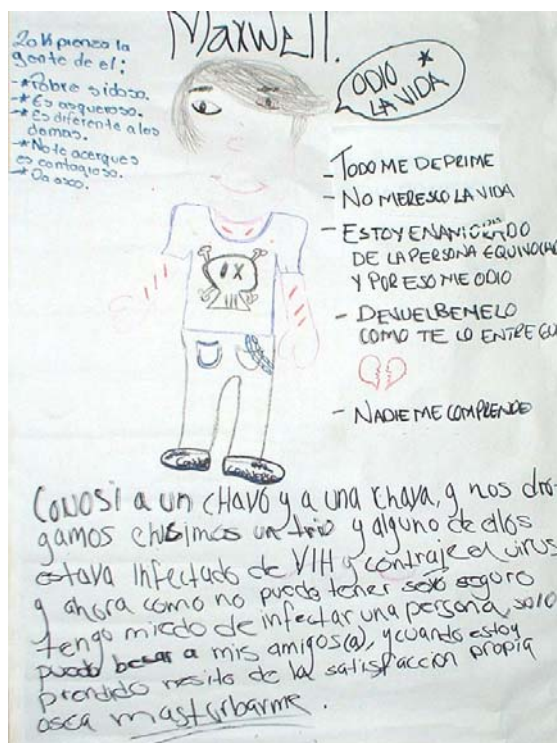 MAXWELL.
Lo k pienza la
gente de el:
-*Pobre sidoso.
-*Es asqueroso.
-*Es diferente a los
demas.
-*No te acerques
es contagioso.
-*Da asco.
ODIO *
LA VIDA
- TODO ME DEPRIME
- NO MERESCO LA VIDA
- ESTOY ENAMORADO
DE LA PERSONA EQUIVOCAD
Y POR ESO ME ODIO
- DEVUELBEMELO
COMO TE LO ENTREGUE
- NADIE ME COMPRENDE
CONVERSE
Conosi a un chavo y a una chava, y nos dro-
gamos chisimos un trio y alguno de ellos
estava infectado de VIH y contraje el virus
y ahora como no puedo tener sexo seguro
tengo miedo de infectar una persona, solo
puedo besar a mis amigos(a), y cuando estoy
prendido nesito de la satisfaccion propia
osea masturbarme.